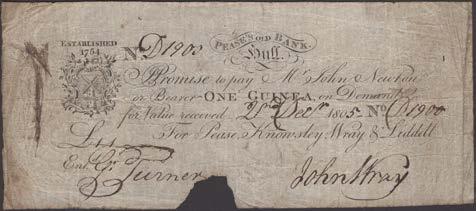 ESTABLISHED
1754
PEASE'S OLD BANK.
Hull.
No. D1900
I Promise to pay Mr. John Newton
or Bearer ONE GUINEA, on Demand
for Value received 2nd Decr. 1805 No. D1900
For Pease, Knowsley, Wray & Liddell
£1,,1
Entd. Turner
John Wray